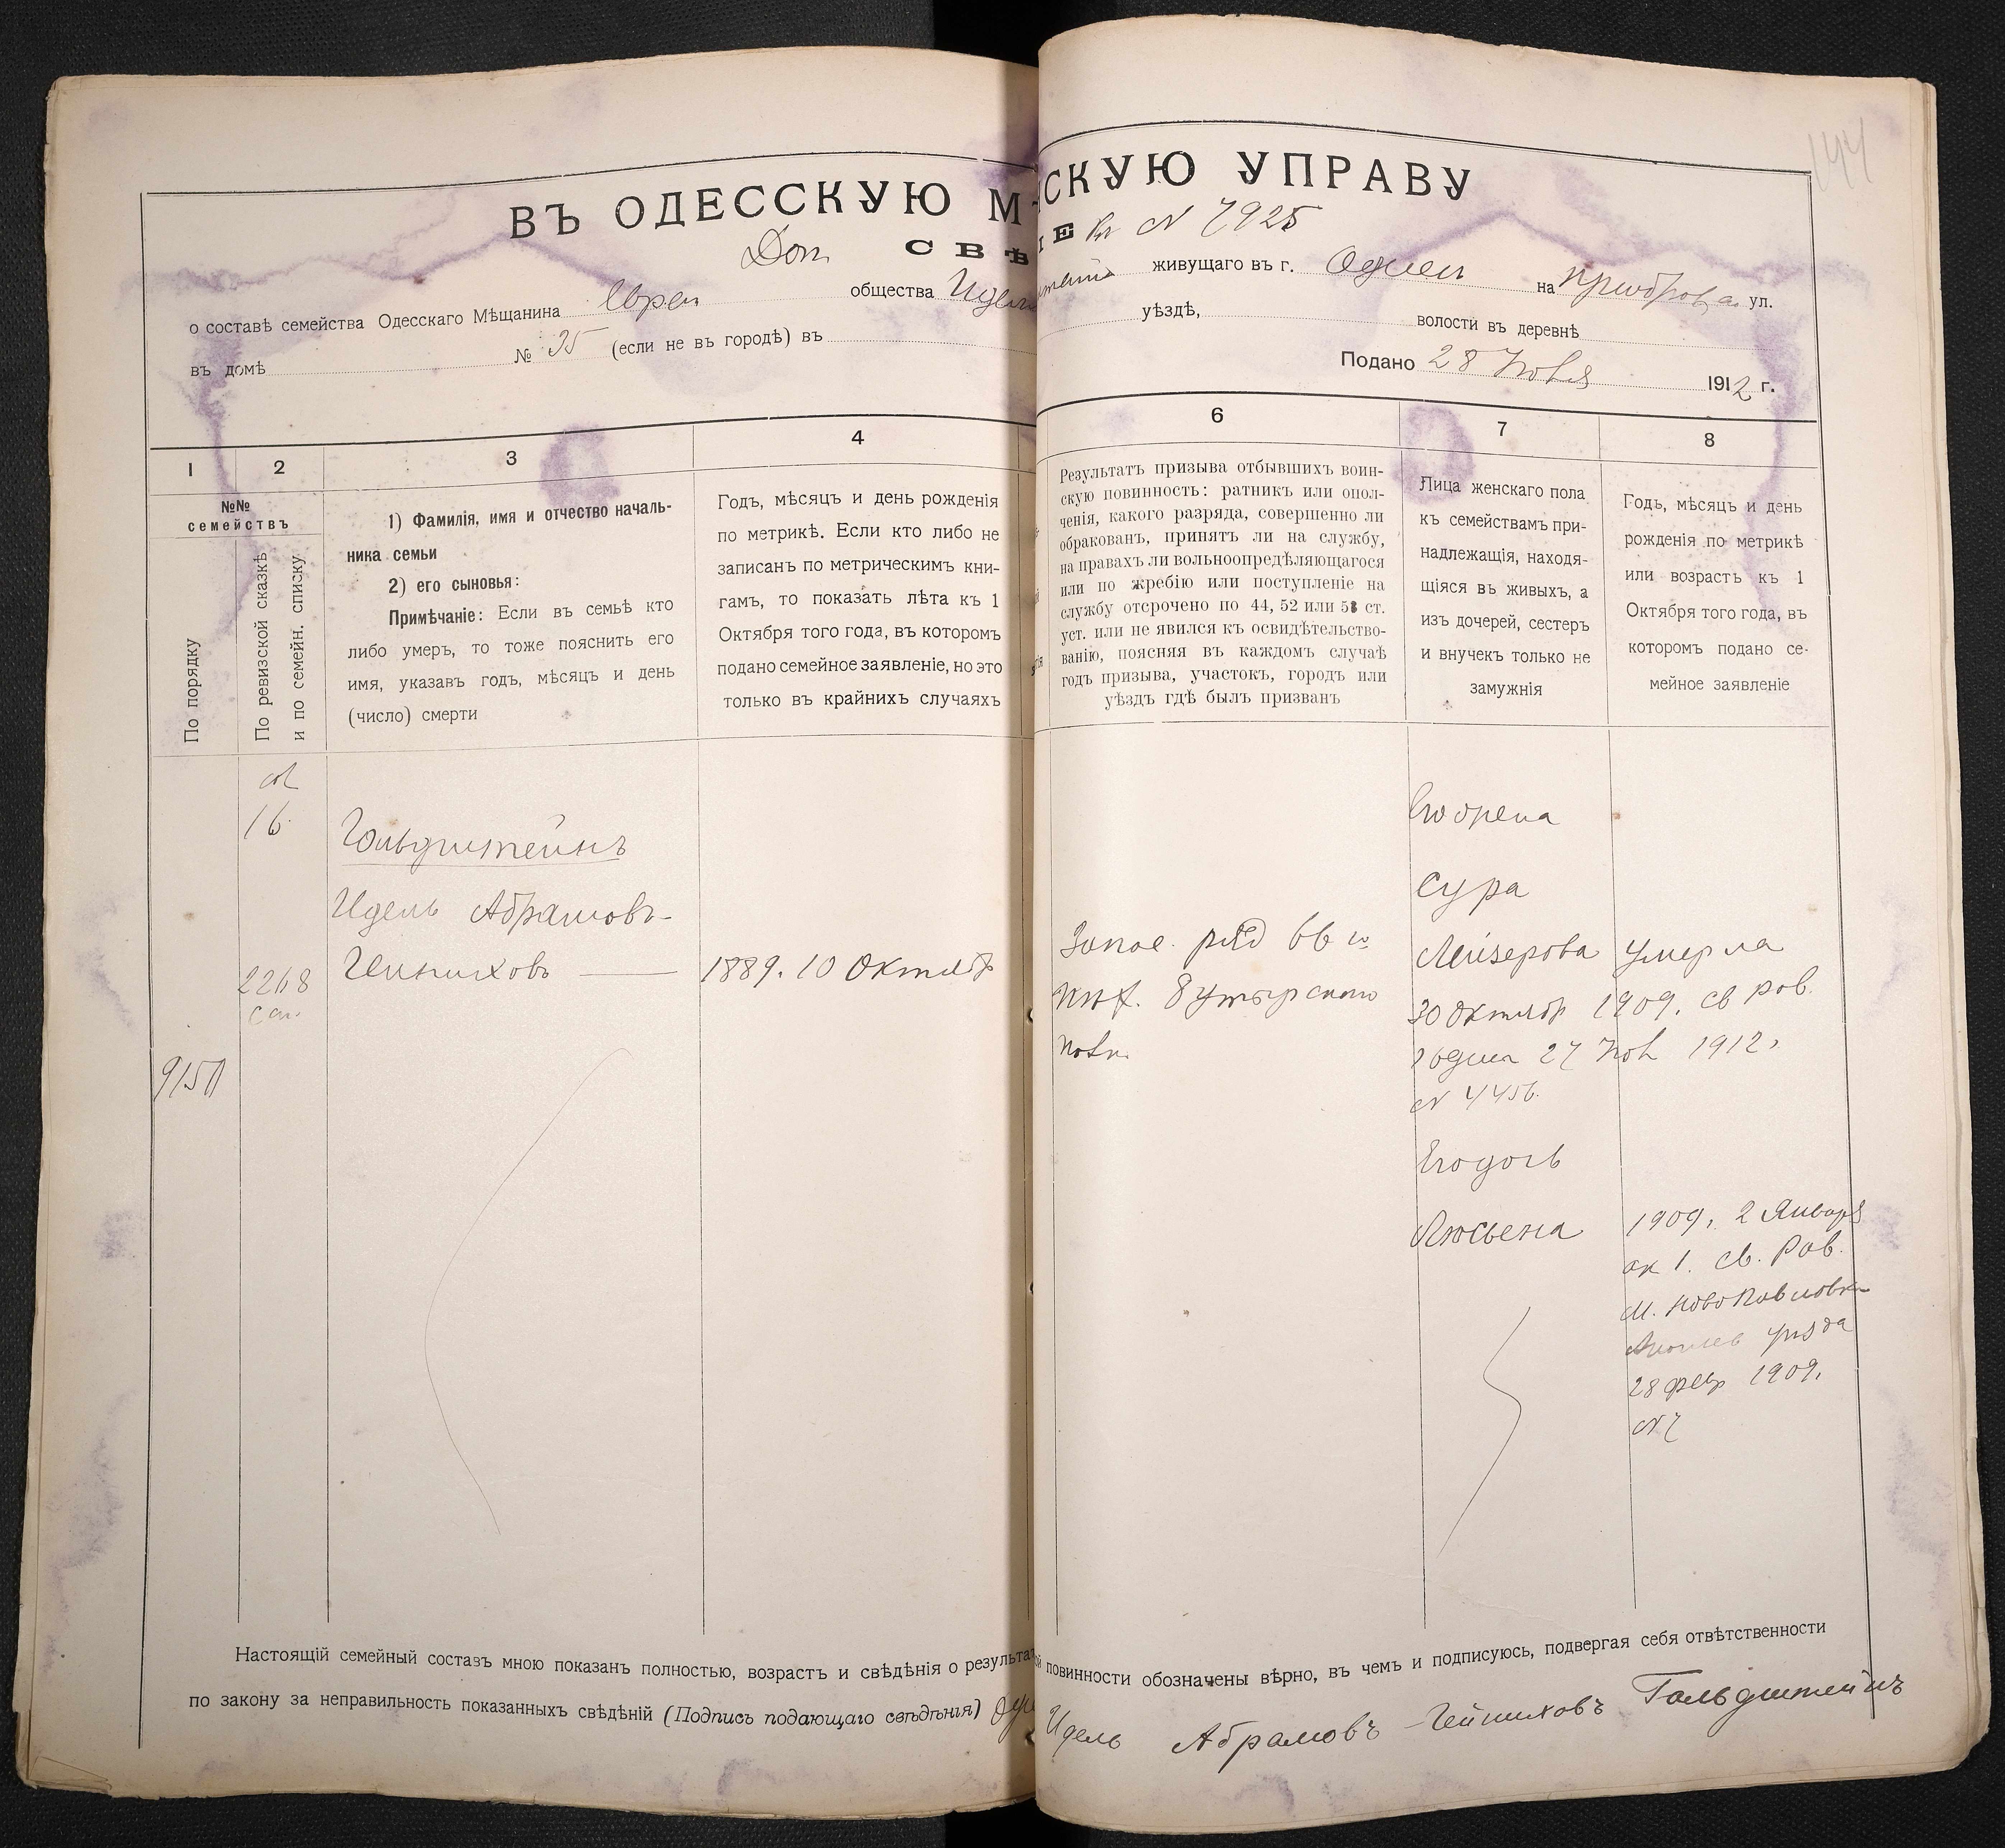 144
ВЪ ОДЕССКУЮ М СКУЮ УПРАВУ
Доп. СВѢ ІЕ № 7925
о составѣ семейства Одесскаго Мѣщанина Евреи общества живущаго въ г. Одессѣ на ул.
въ домѣ № 35 (если не въ городѣ) въ уѣздѣ, волости въ деревнѣ
Подано 28 Ноя 1912 г.
1
2
3
4
6
7
8
№№
семействъ
По порядку
По ревизской сказкѣ
и по семейн. списку
1) Фамилія, имя и отчество началь-
ника семьи
2) его сыновья:
Примѣчаніе: Если въ семьѣ кто
либо умеръ, то тоже пояснить его
имя, указавъ годъ, мѣсяцъ и день
(число) смерти
Годъ, мѣсяцъ и день рожденія
по метрикѣ. Если кто либо не
записанъ по метрическимъ кни-
гамъ, то показать лѣта къ 1
Октября того года, въ которомъ
подано семейное заявленіе, но это
только въ крайнихъ случаяхъ
Результатъ призыва отбывшихъ воин-
скую повинность: ратникъ или опол-
ченія, какого разряда, совершенно ли
обракованъ, принятъ ли на службу,
на правахъ ли вольноопредѣляющагося
или по жребію или поступленіе на
службу отсрочено по 44, 52 или 53 ст.
уст. или не явился къ освидѣтельство-
ванію, поясняя въ каждомъ случаѣ
годъ призыва, участокъ, городъ или
уѣздъ гдѣ былъ призванъ
Лица женскаго пола
къ семействамъ при-
надлежащія, находя-
щіяся въ живыхъ, а
изъ дочерей, сестеръ
и внучекъ только не
замужнія
Годъ, мѣсяцъ и день
рожденія по метрикѣ
или возрастъ къ 1
Октября того года, въ
которомъ подано се-
мейное заявленіе
16
Гольдштейнъ
Идель Абрамовъ-
Гейниховъ — 1889. 10 Октяб
2268
сем.
Запас. ряд 66 го
пѣх. Бутырскаго
полк.
Сура
Лейзерова Умерла
30 Октяб 1909. св рав.
Одессы 27 Ноя 1912.
№ 4456.
Его дочь
Люсьена
1909. 2 Января
ак 1. св. Рав.
м. Новопавловка
уѣзда
28 фев 1909.
№ 7
Настоящій семейный составъ мною показанъ полностью, возрастъ и свѣдѣнія о результа й повинности обозначены вѣрно, въ чемъ и подписуюсь, подвергая себя отвѣтственности
по закону за неправильность показанныхъ свѣдѣній (Подпись подающаго свѣдѣнія) Идель Абрамовъ-Гейниховъ Гольдштейнъ